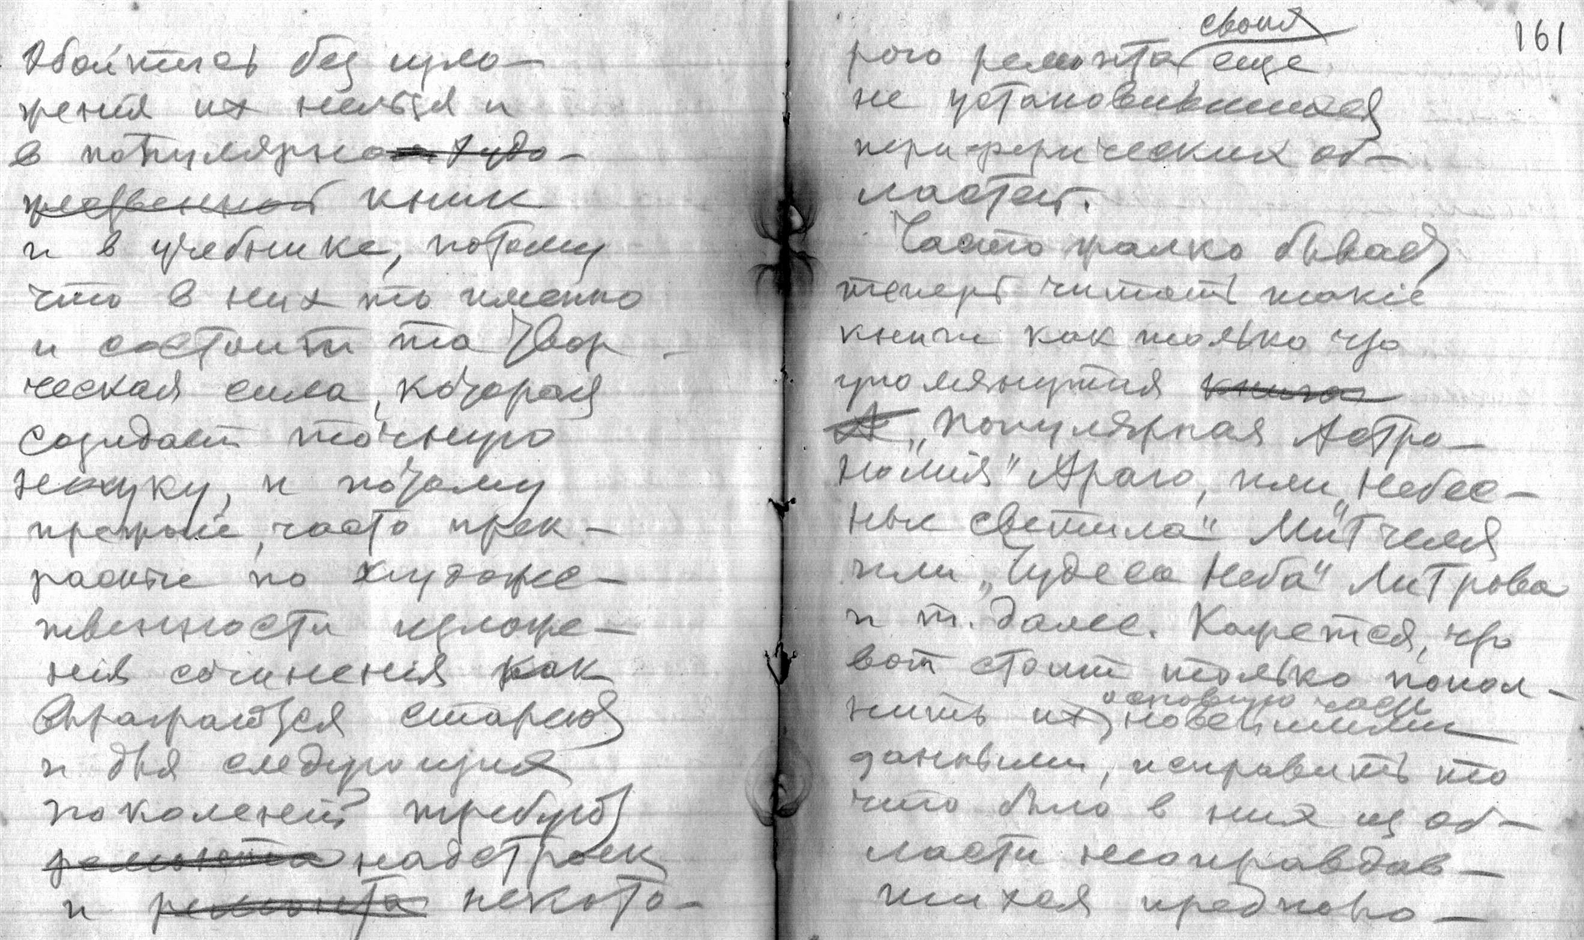 Обойтись без изло-
женiя их нельзя и
в популярно худо-
жественной книге
и в учебнике, потому
что в них то именно
и состоит та твор-
ческая сила, которая
создает точную
науку, и потому
прежнiе, часто прек-
расные по художе-
твенности изложе-
нiя сочиненiя как
старе
и для следующих
поколенiй требуют
ремонта надстроек
и ремонта некото-
161
своих
рого ремонта еще
не установившихся
периферических об-
ластей.
Часто жалко бывает
теперь читать такiе
книги как только что
упомянутыя книга
А „Популярная Астро-
номiя" Араго, или „Небес-
ные светила" Митчеля
или „Чудеса Неба" Литрова
и т. далее. Кажется, что
вот стоит только попол-
основную часть
нить их новейшими
данными, исправить то
что было в них из об-
ласти неоправдав-
шихся предполо-